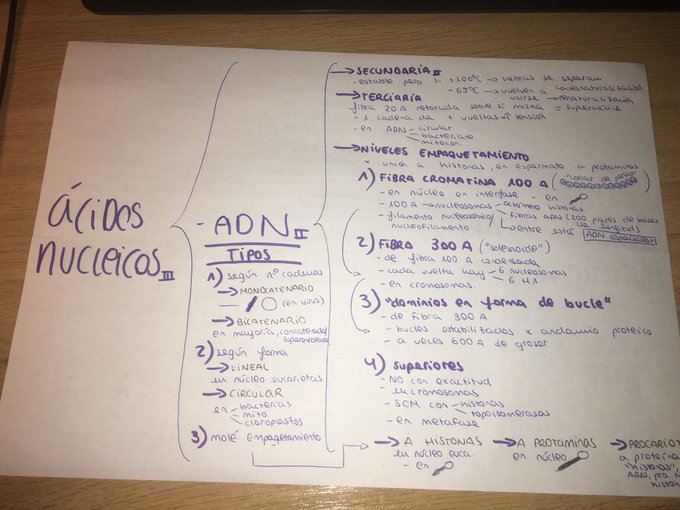 ÁCIDOS
NUCLEICOS III
- ADN II
TIPOS
1) según nº cadenas
→ MONOCATENARIO
(en virus)
→ BICATENARIO
en mayoría, concatenado/
superenrollado
2) según forma
→ LINEAL
en núcleo eucariotas
→ CIRCULAR
en bacterias
mito
cloroplastos
3) molé empaquetamiento
→ SECUNDARIA II
- estable pero si +100ºC → hebras se separan
desnaturalización
- 65ºC → vuelven a
unirse → renaturalización
→ TERCIARIA
fibra 20 A retorcida sobre sí misma = superhélice
- 1 cadena da + vueltas → tensión
- en ADN circular
bacteriano
mitocon.
→ NIVELES EMPAQUETAMIENTO
* unión a histonas, en espermato a protaminas
1) FIBRA CROMATINA 100 A ("collar de perlas")
- en núcleo en interfase - en
- 100 A → nucleosomas → octómero histonas
- filamento nucleosómico/ fibras ADN (200 pares de bases
nucleofilamento de longitud)
entre está ADN espaciador
2) FIBRA 300 A ("solenoide")
- de fibra 100 condensada
- cada vuelta hay 6 nucleosomas
6 H1
- en cromosomas.
3) "dominios en forma de bucle"
- de fibra 300 A
- bucles estabilizados x andamio proteico
- a veces 600 A de grosor
4) superiores
- NO con exactitud
- en cromosomas
- SCM con histonas
topoisomerasas
- en metafase
→ A HISTONAS
en núcleo euca.
- en
→ A PROTAMINAS
en núcleo
→ PROCARIOT
a proteína
"histonas",
ARN, pro. n
histon